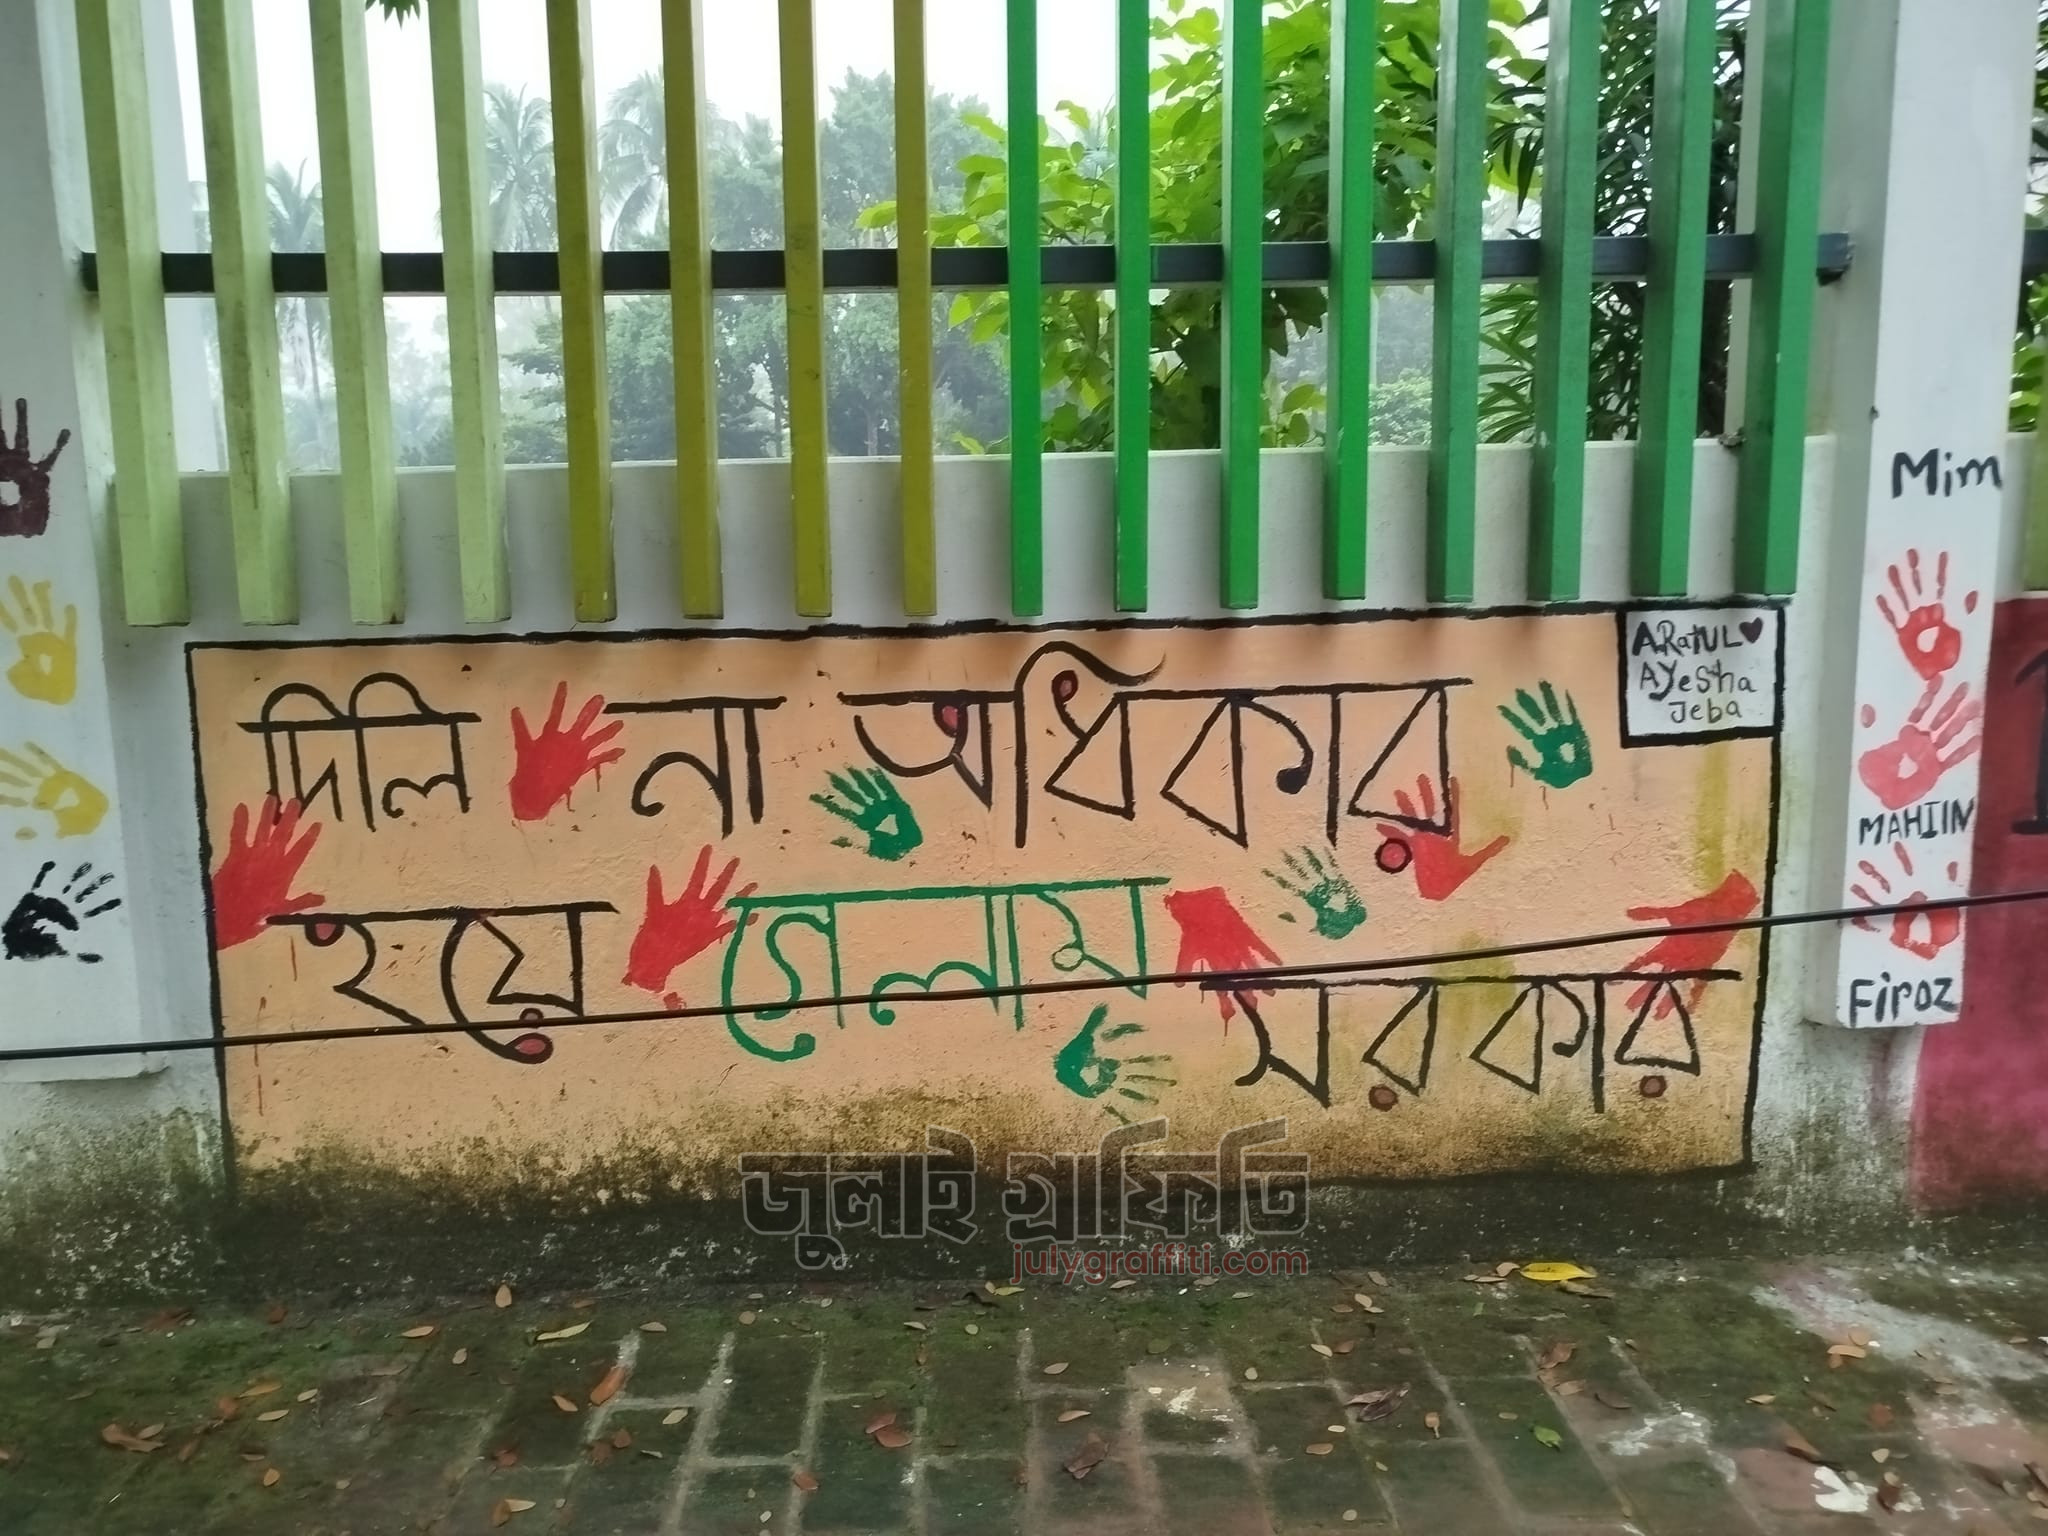 দিলি না অধিকার
হয়ে গেলাম
সরকার
ARatUL
AYeSha
Jeba
Mim
MAHIIN
Firoz
জুলাই গ্রাফিতি
julygraffiti.com